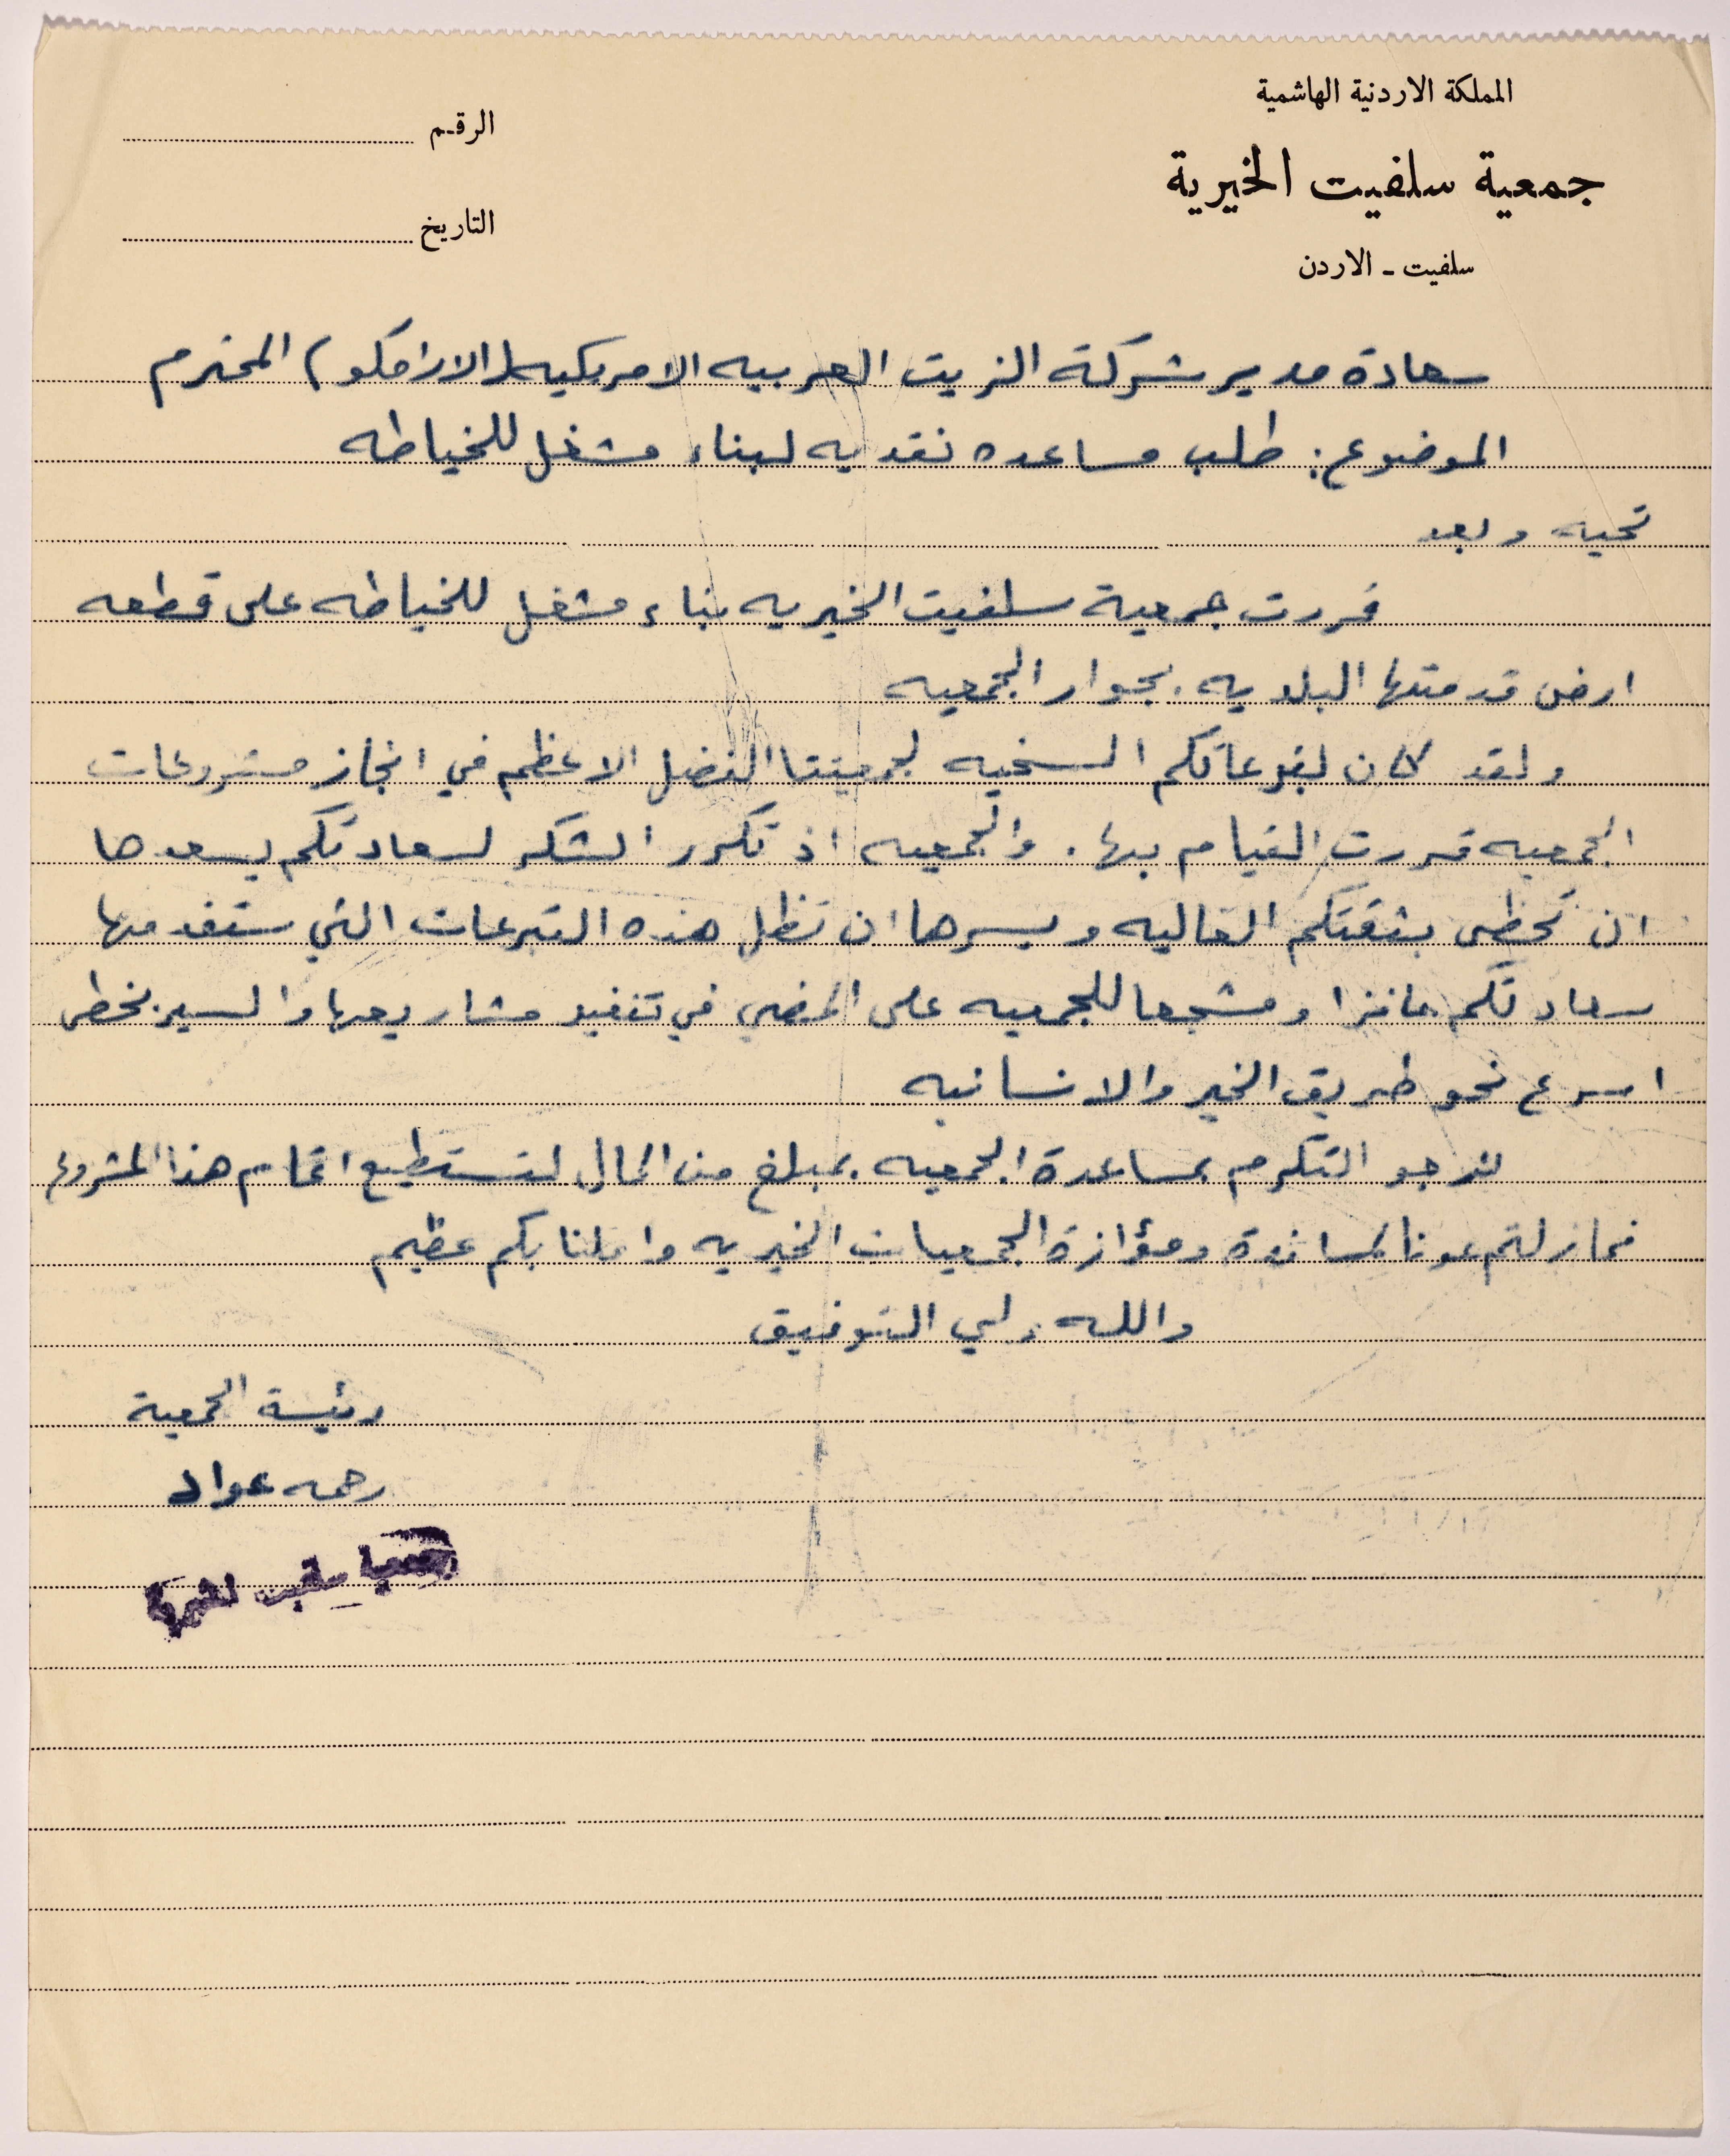 المملكة الاردنية الهاشمية
جمعية سلفيت الخيرية
سلفيت - الاردن
الرقم
التاريخ
سعادة مدير شركة الزيت العربيه الامريكيه (الارامكو) المحترم
الموضوع: طلب مساعده نقديه لبناء مشغل للخياطه
تحيه وبعد
قررت جمعية سلفيت الخيريه بناء مشغل للخياطه على قطعه
ارض قدمتها البلديه بجوار الجمعيه
ولقد كان لتبرعاتكم السخيه لجمعيتنا الفضل الاعظم في انجاز مشروعات
الجمعيه قررت القيام بها. والجمعيه اذ تكرر الشكر لسعادتكم يسعدها
ان تحظى بثقتكم الغاليه ويسرها ان تظل هذه التبرعات التي ستقدمها
سعادتكم حافزا ومشجعا للجمعيه على المضي في تنفيذ مشاريعها والسير بخطى
اسرع نحو طريق الخير والانسانيه
لنرجو التكرم بمساعدة الجمعيه بمبلغ من المال لتستطيع اتمام هذا المشروع
فمازلتم عونا لمساندة ومؤازرة الجمعيات الخيريه واملنا بكم عظيم
والله ولي التوفيق
رئيسة الجمعية
رحمه عواد
جمعية سلفيت الخيرية